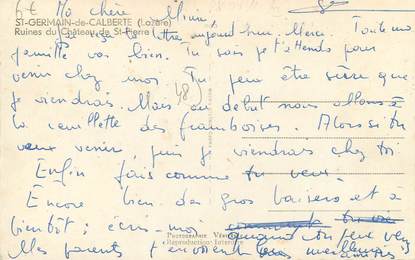 Ma chère Mimi,
ST-GERMAIN-de-CALBERTE (Lozère)
Ruines du Château de St-Pierre
lettre aujourd'hui. Merci. Toute ma
famille va bien. Tu sais je t'attends pour
venir chez moi. Tu peux être sûre que
je viendrais. Mais au début nous allons à
la cueillette des framboises. Alors si tu
veux venir, puis je viendrais chez toi
Enfin fais comme tu veux.
Encore bien des gros baisers et à
bientôt; écris-moi
quand ton peux venir
Reproduction Interdite
Mes parents t'envoient meilleures amitiés
(48)